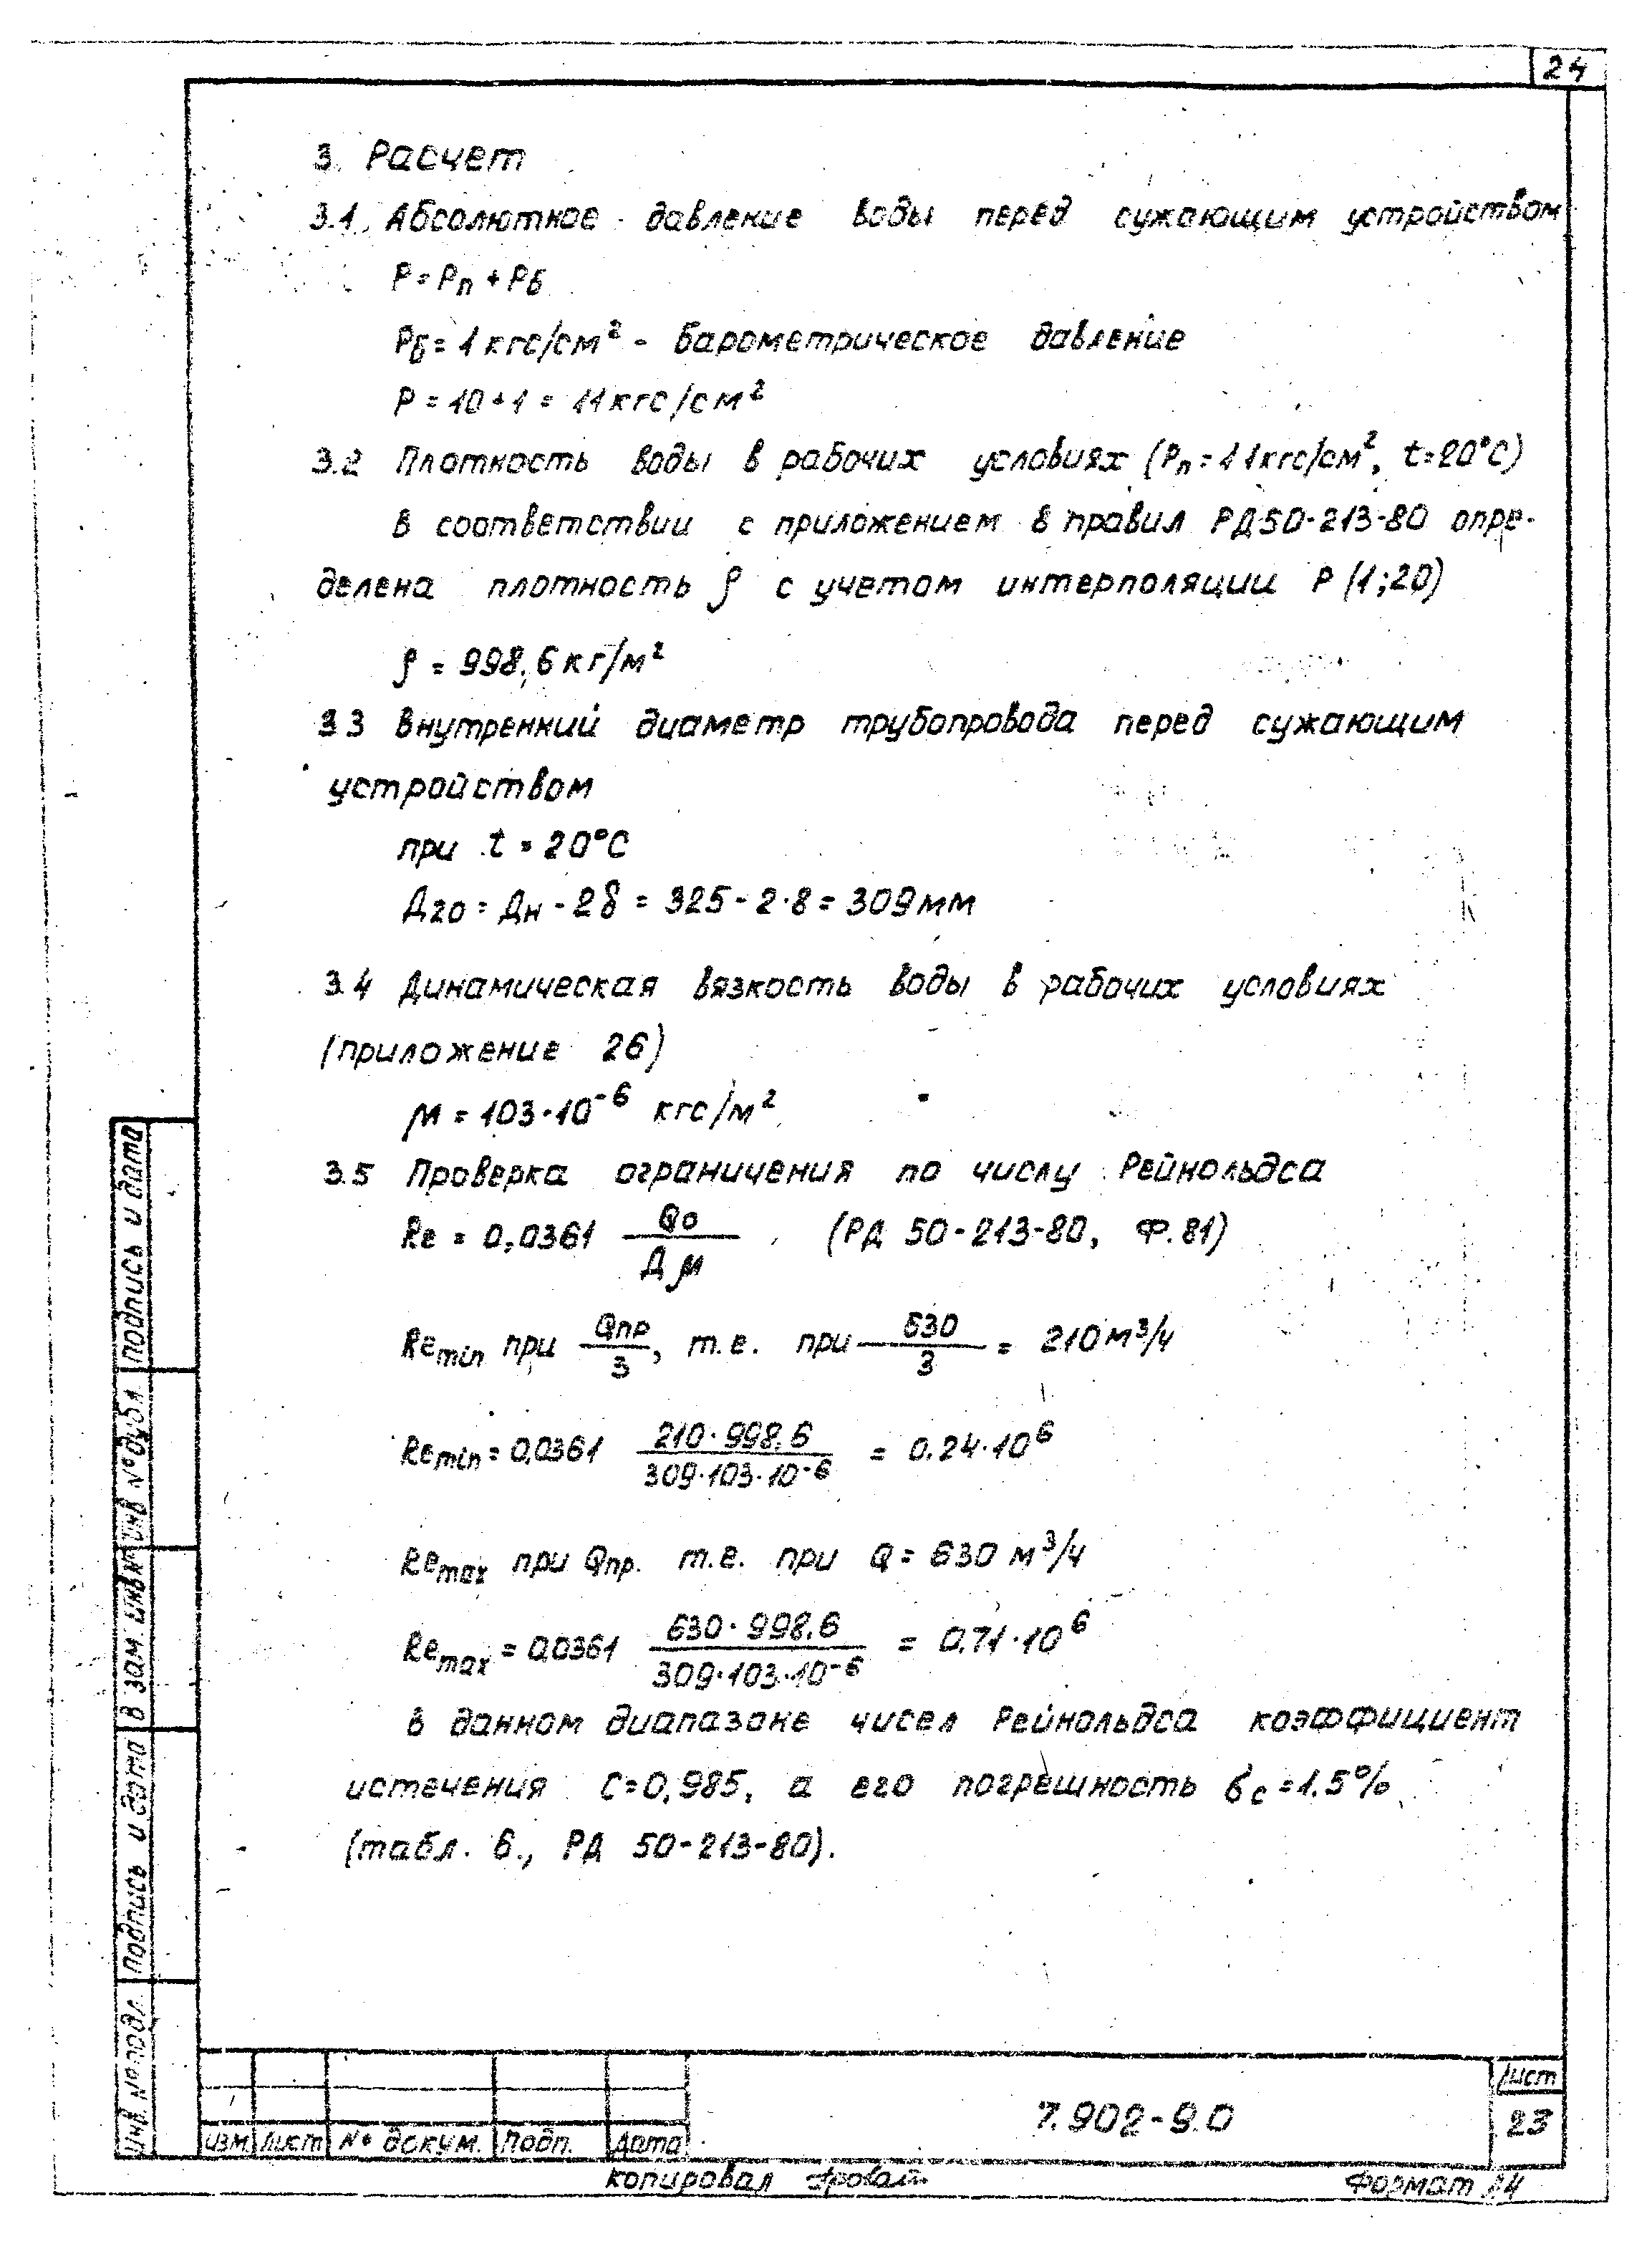 24
3. Расчет
3.1. Абсолютное давление воды перед сужающим устройством
Р = Рп + Рб
Рб = 1 кгс/см² - барометрическое давление
Р = 10 + 1 = 11 кгс/см²
3.2 Плотность воды в рабочих условиях (Рп = 11 кгс/см², t = 20°С)
В соответствии с приложением 6 правил РД 50-213-80 опре-
делена плотность ρ с учетом интерполяции Р (1; 20)
ρ = 998,6 кг/м²
3.3 Внутренний диаметр трубопровода перед сужающим
устройством
при t = 20°С
Д20 = Дн - 2δ = 325 - 2·8 = 309 мм
3.4 Динамическая вязкость воды в рабочих условиях
(приложение 26)
μ = 103·10⁻⁶ кгс/м²
3.5 Проверка ограничения по числу Рейнольдса
Re = 0,0361 Qo / Д μ (РД 50-213-80, Ф. 81)
Remin при Qпр / 3, т.е. при 630 / 3 = 210 м³/ч
Remin = 0,0361 210·998,6 / 309·103·10⁻⁶ = 0,24·10⁶
Remax при Qпр. т.е. при Q = 630 м³/ч
Remax = 0,0361 630·998,6 / 309·103·10⁻⁶ = 0,71·10⁶
В данном диапазоне чисел Рейнольдса коэффициент
истечения С = 0,985, а его погрешность бс = 1,5%
(табл. 6., РД 50-213-80).
Подпись и дата
Инв №дубл
Взам инв №
Подпись и дата
Инв. № подл.
Изм. Лист № докум. Подп. Дата
7.902-9.0
Лист
23
Копировал
Формат А4